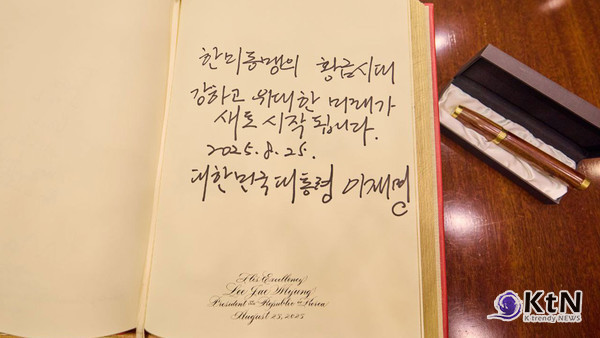 한미동맹의 황금시대
강하고 위대한 미래가
새로 시작됩니다.
2025. 8. 25.
대한민국 대통령 이재명
His Excellency
Lee Jae Myung
President of the Republic of Korea
August 25, 2025
KtN
K trendy NEWS